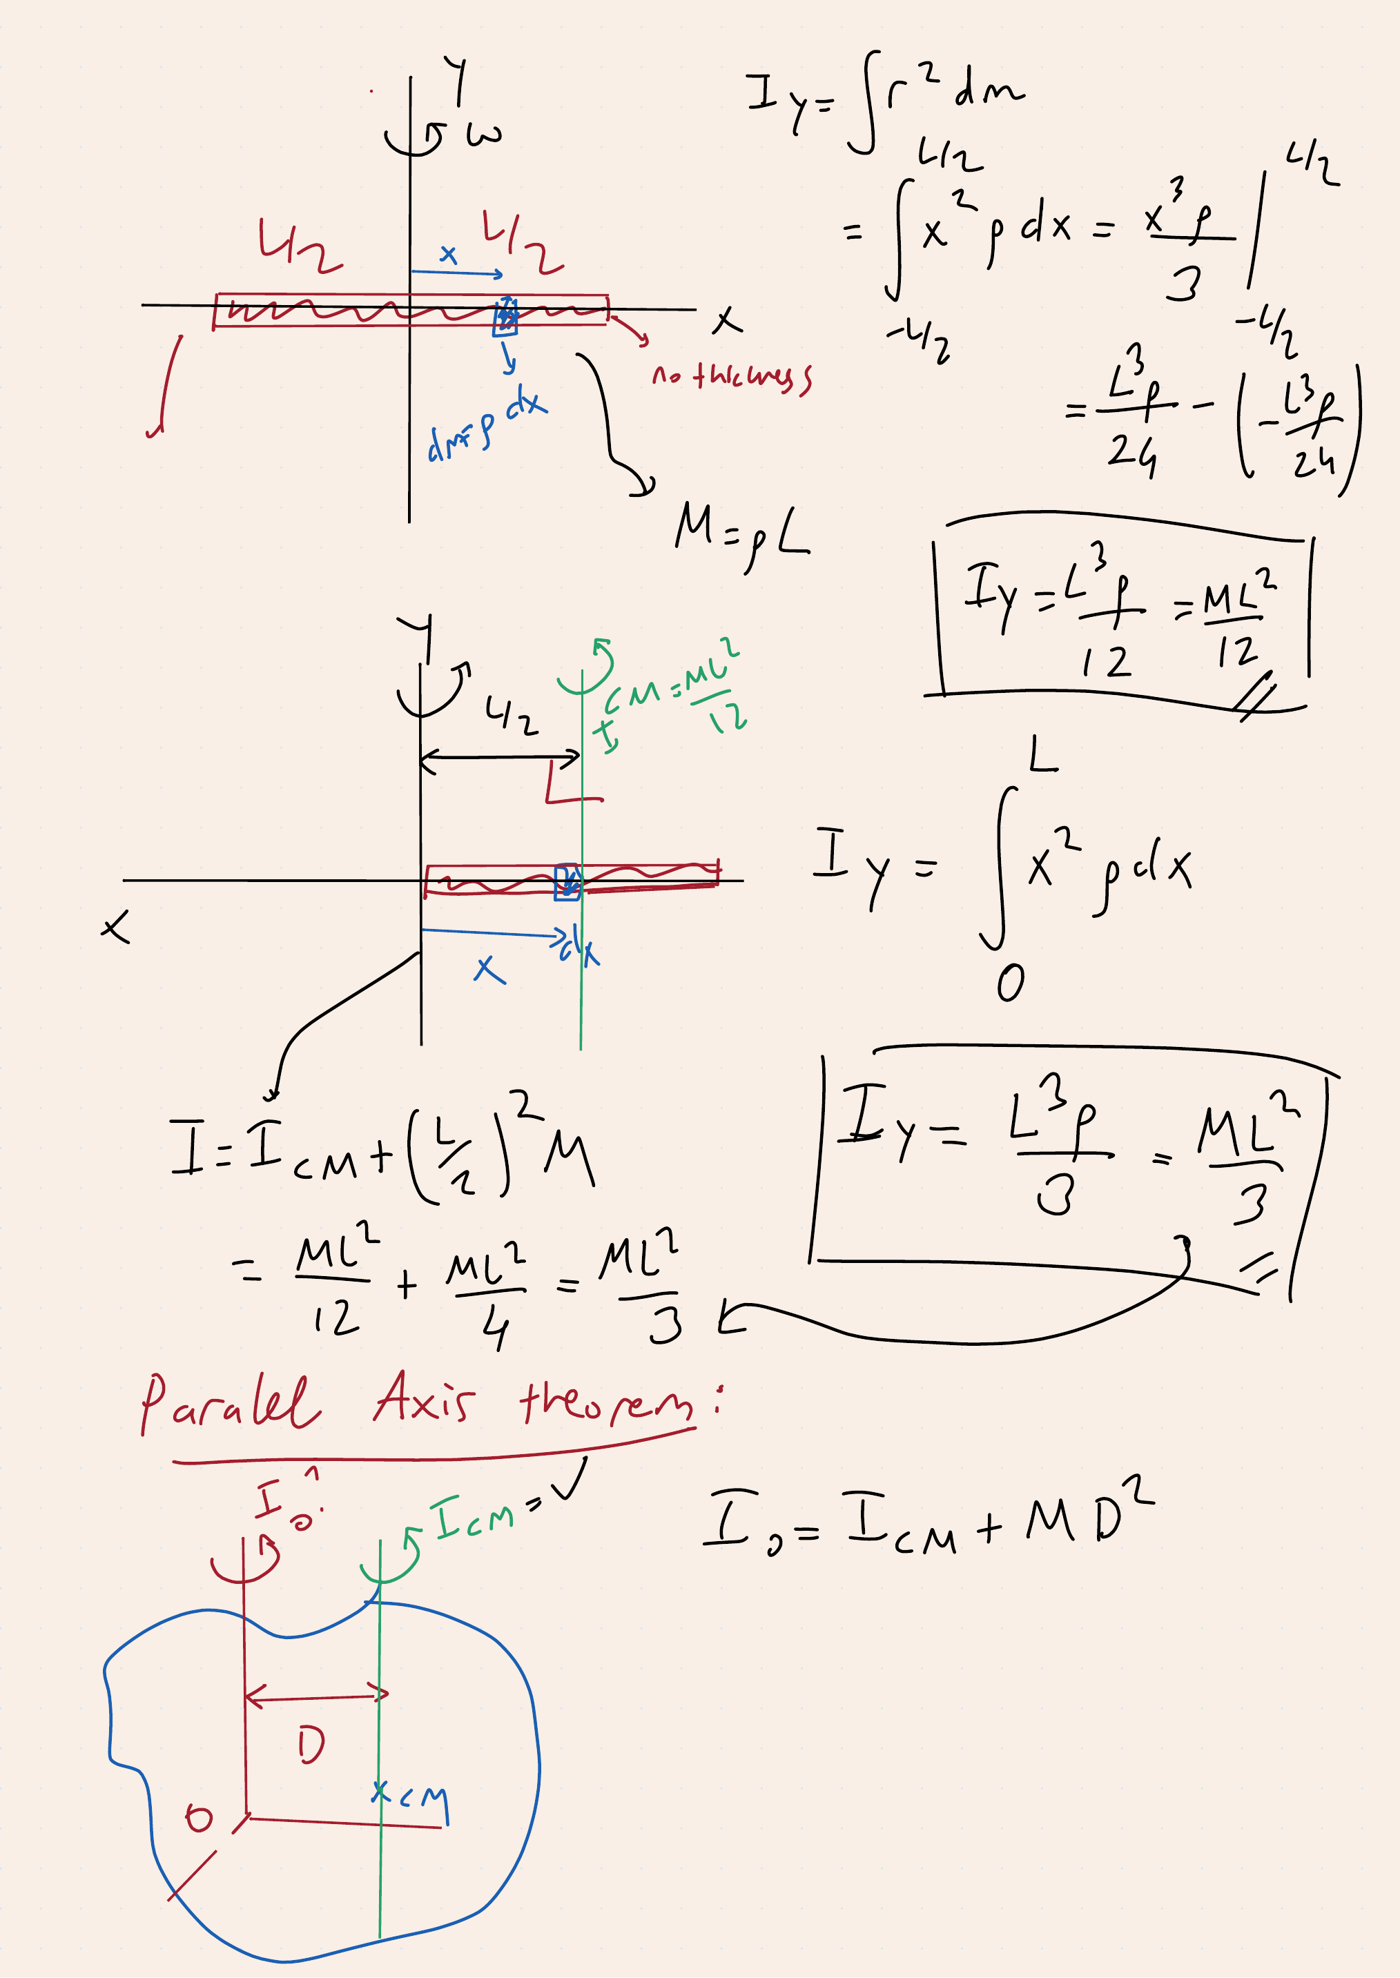 Y
ω
L/2
L/2
x
x
no thickness
dm=ρ dx
M=ρL
I y = ∫ r² dm
= ∫ x² ρ dx = x³ρ/3 |
L/2
-L/2
L/2
-L/2
= L³ρ/24 - (-L³ρ/24)
Iy = L³ρ/12 = ML²/12
Y
L/2
I CM = ML²/12
L
x
x
dx
L
I y = ∫ x² ρ dx
0
Iy = L³ρ/3 = ML²/3
I = I CM + (L/2)² M
= ML²/12 + ML²/4 = ML²/3
Paralel Axis theorem:
I o?
I CM = ✓
I o = I CM + M D²
D
x CM
O